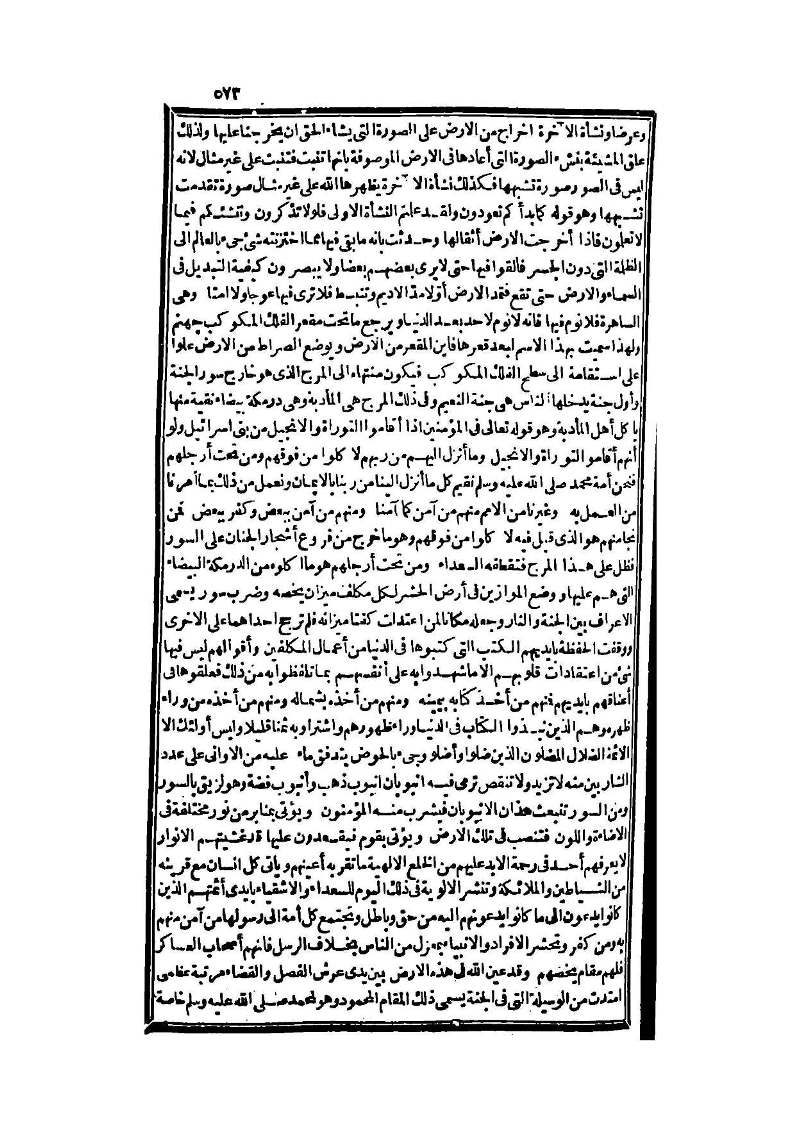 ٥٧٣
وعرضا ونشأة الآخرة اخراج من الارض على الصورة التى يشاء الحق ان يخرجنا عليها ولذلك
علق المشيئة بنشر الصورة التى أعادها فى الارض الموصوفة بانها تنبت فتنبت على غير مثال لانه
ليس فى الصور صورة تشبهها فكذلك نشأة الآخرة يظهرها الله على غير مثال صورة تقدمت
تشبهها وهو قوله كما بدأكم تعودون ولقد علمتم النشأة الاولى فلولا تذكرون وننشئكم فيما
لا تعلمون فاذا أخرجت الارض أثقالها وحدثت بانه ما بقى فيها مما اختزنته شئ جىء بالعالم الى
الظلمة التى دون الجسر فألقوا فيها حتى لا يرى بعضهم بعضا ولا يبصرون كيفية التبديل فى
السماء والارض حتى تقع فتمد الارض أولا مد الاديم وتنبسط فلا ترى فيها عوجا ولا امتا وهى
الساهرة فلا نوم فيها فانه لا نوم لاحد بعد الدنيا ويرجع ما تحت مقعر الفلك المكوكب جهنم
ولهذا سميت بهذا الاسم لبعد قعرها فاين المقعر من الارض ويوضع الصراط من الارض علوا
على استقامة الى سطح الفلك المكوكب فيكون منتهاه الى المرج الذى هو خارج سور الجنة
وأول جنة يدخلها الناس هى جنة النعيم وفى ذلك المرج هى المأدبة وهى درمكة بيضاء نقية منها
يأكل أهل المأدبة وهو قوله تعالى فى المؤمنين اذا أقاموا التوراة والانجيل من بنى اسرائيل ولو
أنهم أقاموا التوراة والانجيل وما أنزل اليهم من ربهم لاكلوا من فوقهم ومن تحت أرجلهم
فنحن أمة محمد صلى الله عليه وسلم نقيم كل ما أنزل الينا من ربنا بالايمان ونعمل من ذلك بما أمرنا
من العمل به وغيرنا من الامم منهم من آمن كما آمنا ومنهم من آمن ببعض وكفر ببعض فمن
نجا منهم هو الذى قيل فيه لاكلوا من فوقهم وهو ما خرج من فروع أشجار الجنان على السور
فظلل على هذا المرج فتقطفه السعداء ومن تحت أرجلهم هو ما اكلوه من الدرمكة البيضاء
التى هم عليها ووضع الموازين فى أرض الحشر لكل مكلف ميزان يخصه وضرب سور يسمى
الاعراف بين الجنة والنار وجعله مكانا لمن اعتدلت كفتا ميزانه فلم ترجح احداهما على الاخرى
ووقفت الحفظة بايديهم الكتب التى كتبوها فى الدنيا من أعمال المكلفين وأقوالهم ليس فيها
شئ من اعتقادات قلوبهم الا ما شهدوا به على أنفسهم بما تلفظوا به من ذلك فعلقوها فى
أعناقهم بايديهم فمنهم من أخذ كتابه بيمينه ومنهم من أخذه بشماله ومنهم من أخذه من وراء
ظهره وهم الذين نبذوا الكتاب فى الدنيا وراء ظهورهم واشتروا به ثمنا قليلا وليس أولئك الا
الائمة الضلال المضلون الذين ضلوا وأضلوا وجىء بالحوض يتدفق ماء عليه من الاوانى على عدد
الشاربين منه لا تزيد ولا تنقص ترمى فيه انبوبان انبوب ذهب وأنبوب فضة وهو لزيق بالسور
ومن السور تنبعث هذان الانبوبان فيشرب منه المؤمنون ويؤتى بمنابر من نور مختلفة فى
الاضاءة واللون فتنصب فى تلك الارض ويؤتى بقوم فيقعدون عليها قد غشيتهم الانوار
لا يعرفهم أحد فى رحمة الابد عليهم من الخلع الالهية ما تقر به أعينهم ويأتى كل انسان مع قرينه
من الشياطين والملائكة وتنشر الالوية فى ذلك اليوم للسعداء والاشقياء بايدى أئمتهم الذين
كانوا يدعون الى ما كانوا يدعونهم اليه من حق وباطل وتجتمع كل أمة الى رسولها من آمن منهم
به ومن كفر وتحشر الافراد والانبياء بمعزل من الناس بخلاف الرسل فانهم أصحاب العساكر
فلهم مقام يخصهم وقد عين الله فى هذه الارض بين يدى عرش الفصل والقضاء مرتبة عظمى
امتدت من الوسيلة التى فى الجنة يسمى ذلك المقام المحمود وهو لمحمد صلى الله عليه وسلم خاصة